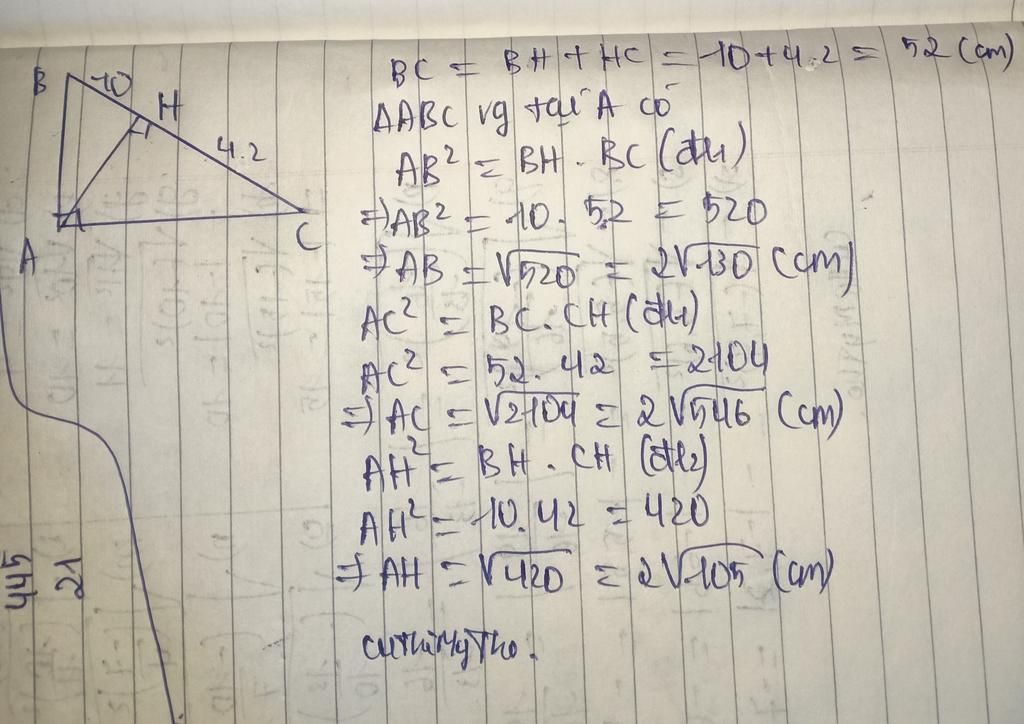 B
10
H
4.2
A
C
BC = BH + HC = 10 + 4.2 = 52 (cm)
ΔABC vg tại A có
AB² = BH . BC (đl1)
⇒ AB² = 10 . 52 = 520
⇒ AB = √520 = 2√130 (cm)
AC² = BC . CH (đl1)
AC² = 52 . 42 = 2104
⇒ AC = √2104 = 2√546 (cm)
AH² = BH . CH (đl2)
AH² = 10 . 42 = 420
⇒ AH = √420 = 2√105 (cm)
445
21